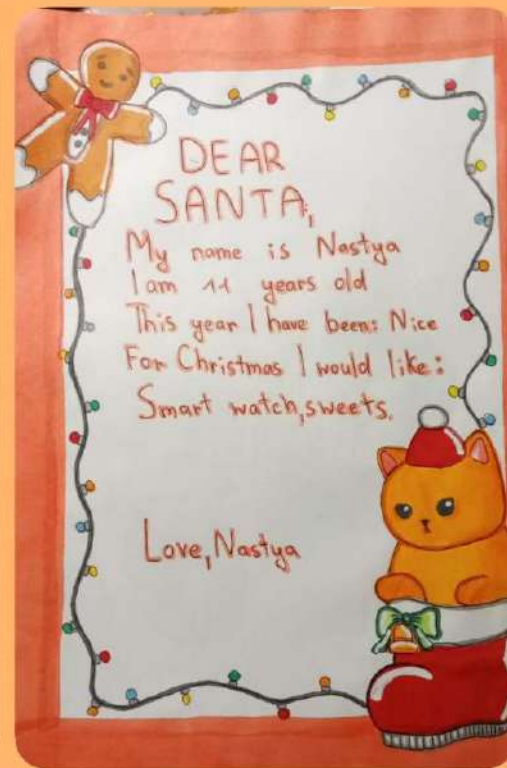 DEAR
SANTA,
My name is Nastya
I am 11 years old
This year I have been: Nice
For Christmas I would like:
Smart watch, sweets.
Love, Nastya